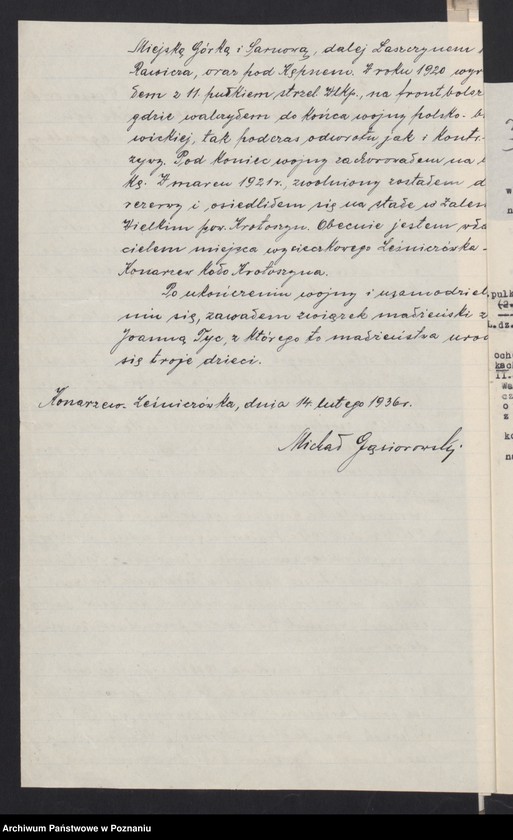 Miejską Górką i Sarnową, dalej Laszczynem
Rawicza, oraz pod Kępnem. W roku 1920 wyr
łem z 11. pułkiem strzel. Wlkp., na front bolsz
gdzie walczyłem do końca wojny polsko-b
wickiej, tak podczas odwrotu jak i kontr
zywy. Pod koniec wojny zachorowałem na
kę. W marcu 1921 r., zwolniony zostałem d
rezerwy i osiedliłem się na stałe w Zales
Wielkim pow. Krotoszyn. Obecnie jestem wła
cicielem miejsca wycieczkowego Leśniczówka -
Konarzew koło Krotoszyna.
Po ukończeniu wojny i usamodziel
niu się, zawarłem związek małżeński z
Joanną Tyc, z którego to małżeństwa urod
się troje dzieci.
Konarzew-Leśniczówka, dnia 14. lutego 1936 r.
Michał Gąsiorowski.
pułk
l.dz.
och
II.
Wa
cz
o
z
ko
na
Archiwum Państwowe w Poznaniu